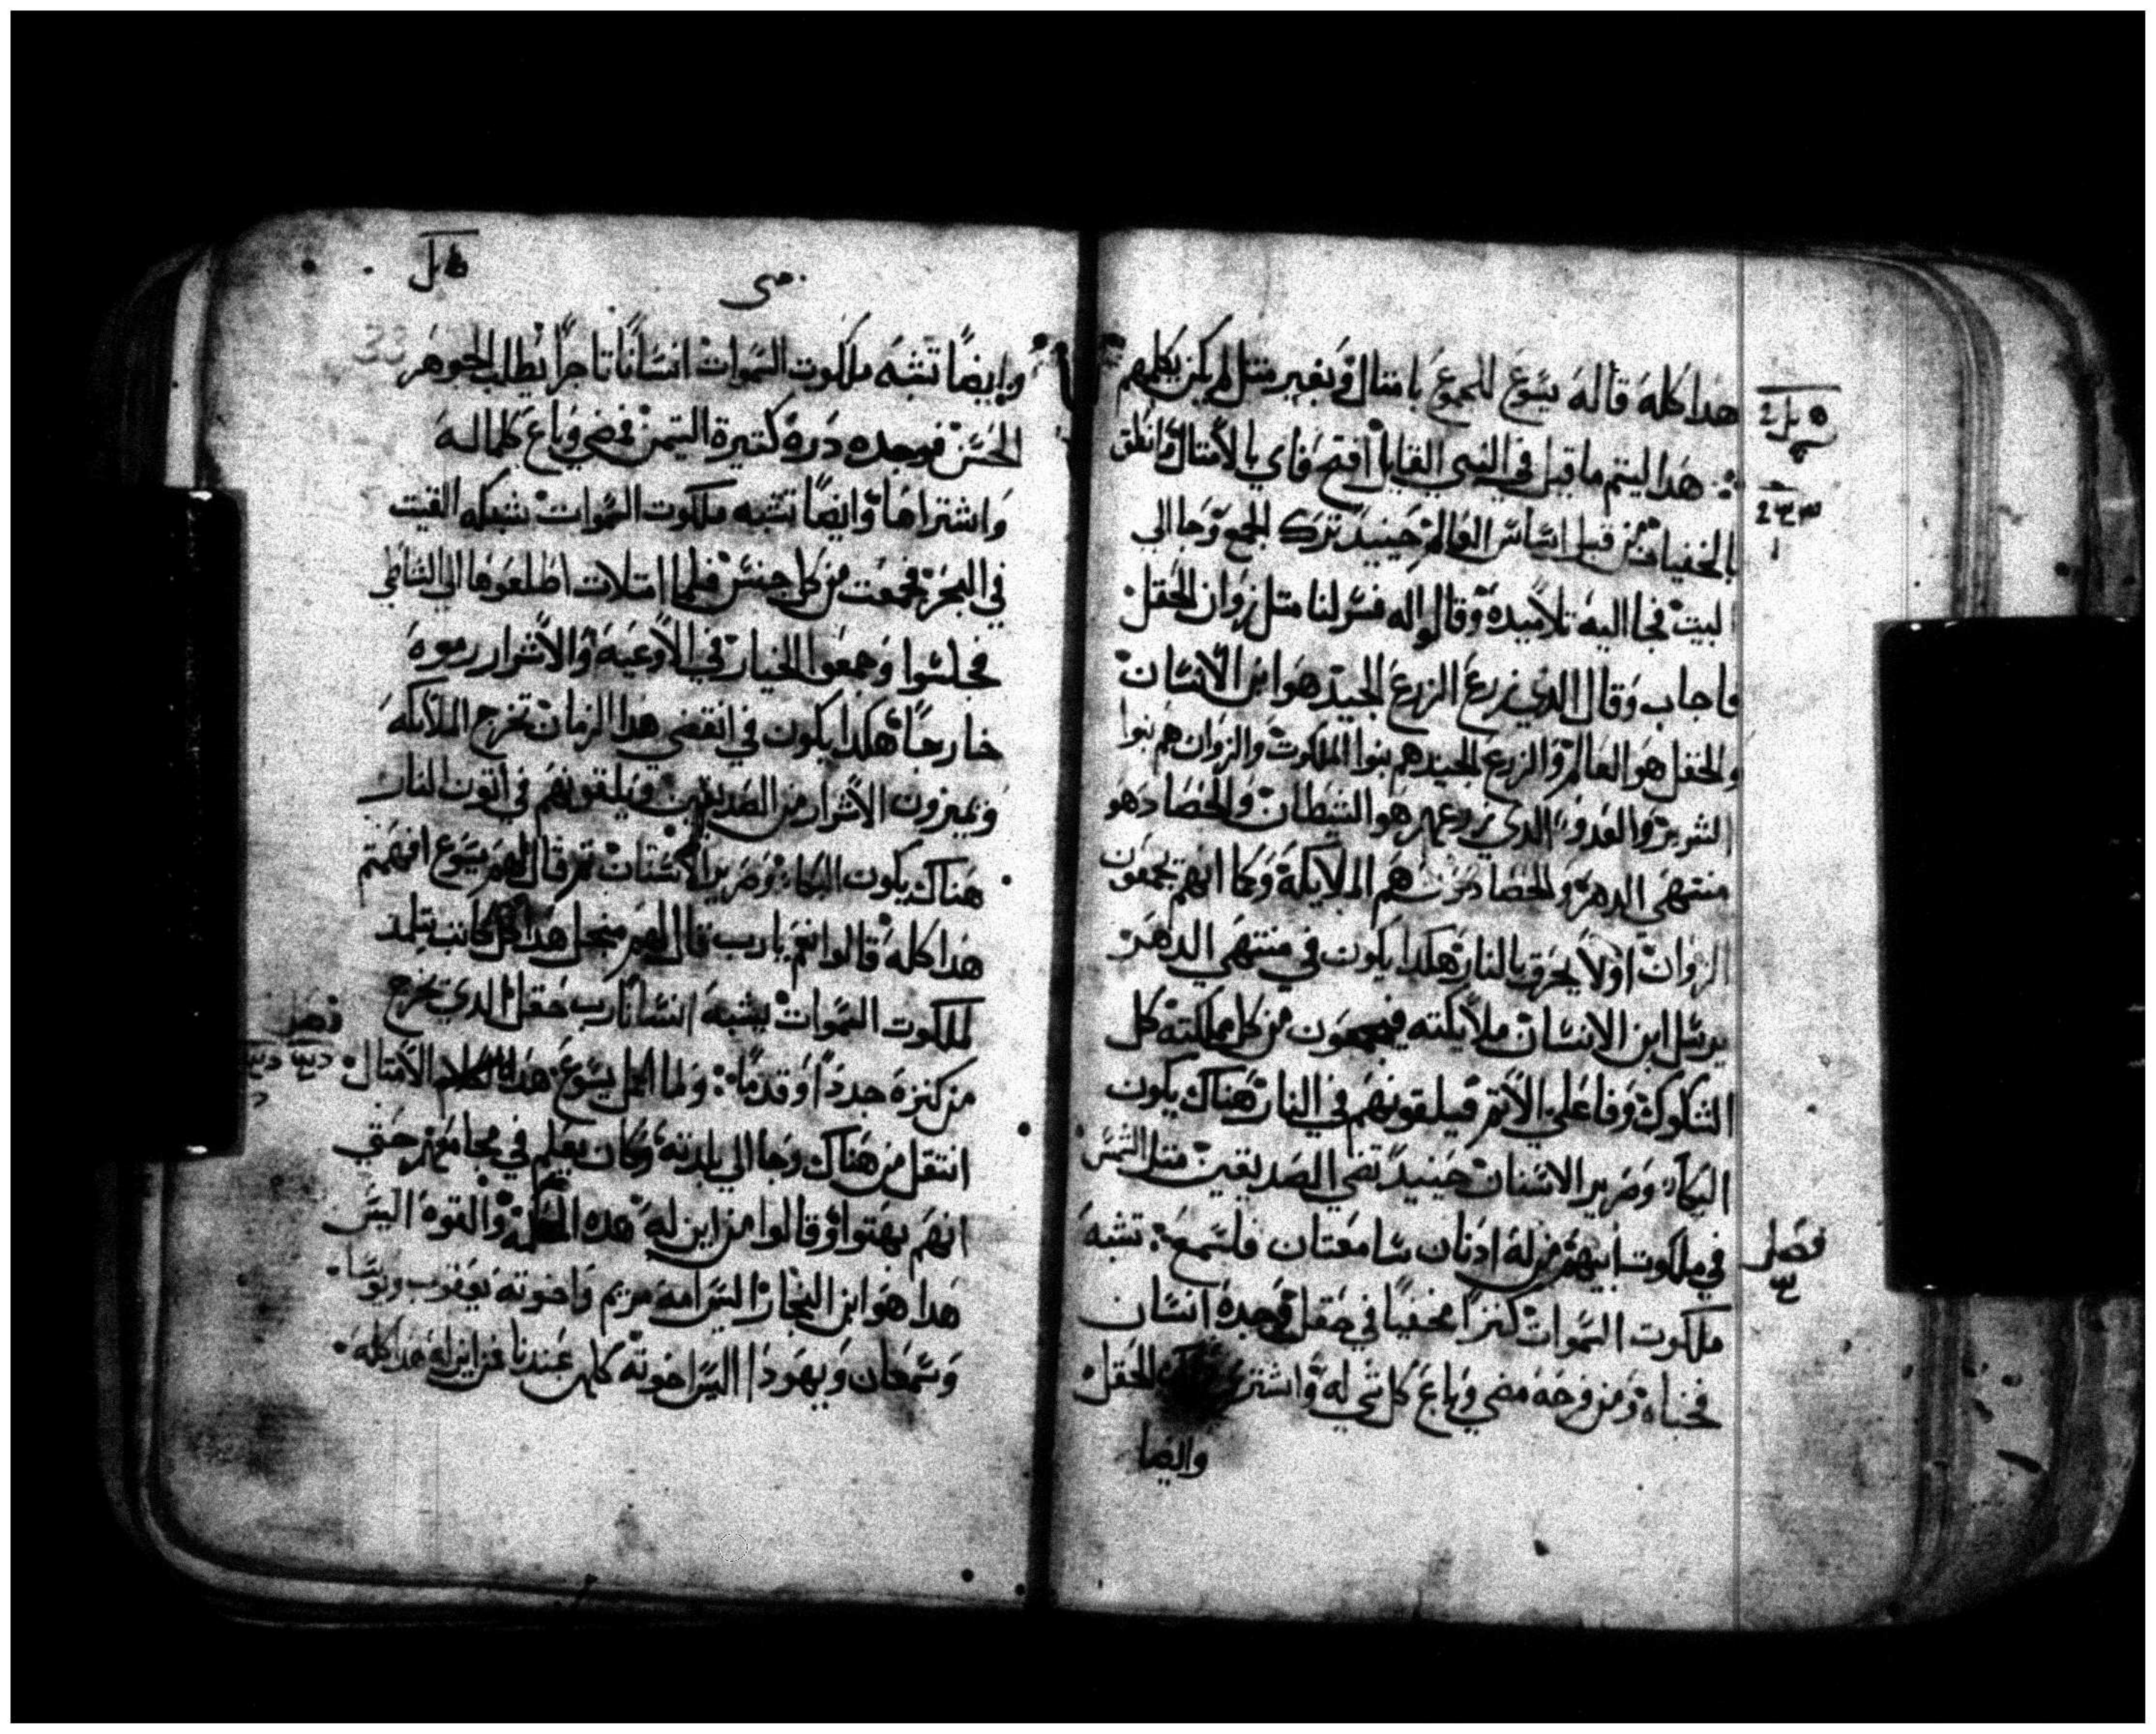 هدا كله قاله يسوع للجموع بامتال وبغير متل لم يكن يكلمهم
هدا ليتم ما قيل في النبي القايل افتح فاي بالامتال وانطق
بالخفيات من قبل اساس العالم حينيد ترك الجمع وجا الي
البيت فجا اليه تلاميده وقالوا له فسر لنا متل زوان الحقل
فاجاب وقال الدي زرع الزرع الجيد هو ابن الانسان
والحقل هو العالم والزرع الجيد هم بنوا الملكوت والزوان هم بنوا
الشرير والعدو الدي زرعهم هو الشيطان والحصاد هو
منتهي الدهر والحصادون هم الملايكة وكما انهم يجمعون
الزوان اولا يحرق بالنار هكدا يكون في منتهي الدهر
يرسل ابن الانسان ملايكته فيجمعون من كل مملكته كل
الشكوك وفاعلي الاتم فيلقونهم في النار هناك يكون
البكا وضرير الاسنان حينيد تضي الصديقين متل الشمس
في ملكوت ابيهم من له ادنان سامعتان فليسمع تشبه
ملكوت السموات كنزا مخفيا في حقل وجده انسان
فخباه ومن فرحه مضي وباع كل شي له واشتري الحقل
وايضا
متي
وايضا تشبه ملكوت السموات انسانا تاجرا يطلب الجوهر
الحسن فوجده دره كتيرة التمن فمضي وباع كلما له
واشتراها وايضا تشبه ملكوت السموات شبكه القيت
في البحر فجمعت من كل جنس فلما امتلات اطلعوها الي الشاطي
فجلسوا وجمعوا الخيار في الاوعيه والاشرار رموه
خارجا هكدا يكون في انقضي هدا الزمان تخرج الملايكه
ويميزون الاشرار من الصديقين ويلقونهم في اتون النار
هناك يكون البكا وضرير الاسنان تم قال لهم يسوع افهمتم
هدا كله قالوا نعم يارب قال لهم من اجل هدا كل كاتب يتلمد
لملكوت السموات يشبه انسانا رب حقل الدي يخرج
من كنزه جددا وقدما ولما اكمل يسوع هدا الكلام الامتال
انتقل من هناك وجا الي بلدته وكان يعلم في مجامعهم حتي
انهم بهتوا وقالوا من اين له هده الحكمه والقوه اليس
هدا هو ابن النجار اليس امه مريم واخوته يعقوب ويوسا
وسمعان ويهودا اليس اخوته كلهن عندنا فمن اين له هدا كله
فصل
فصل
33